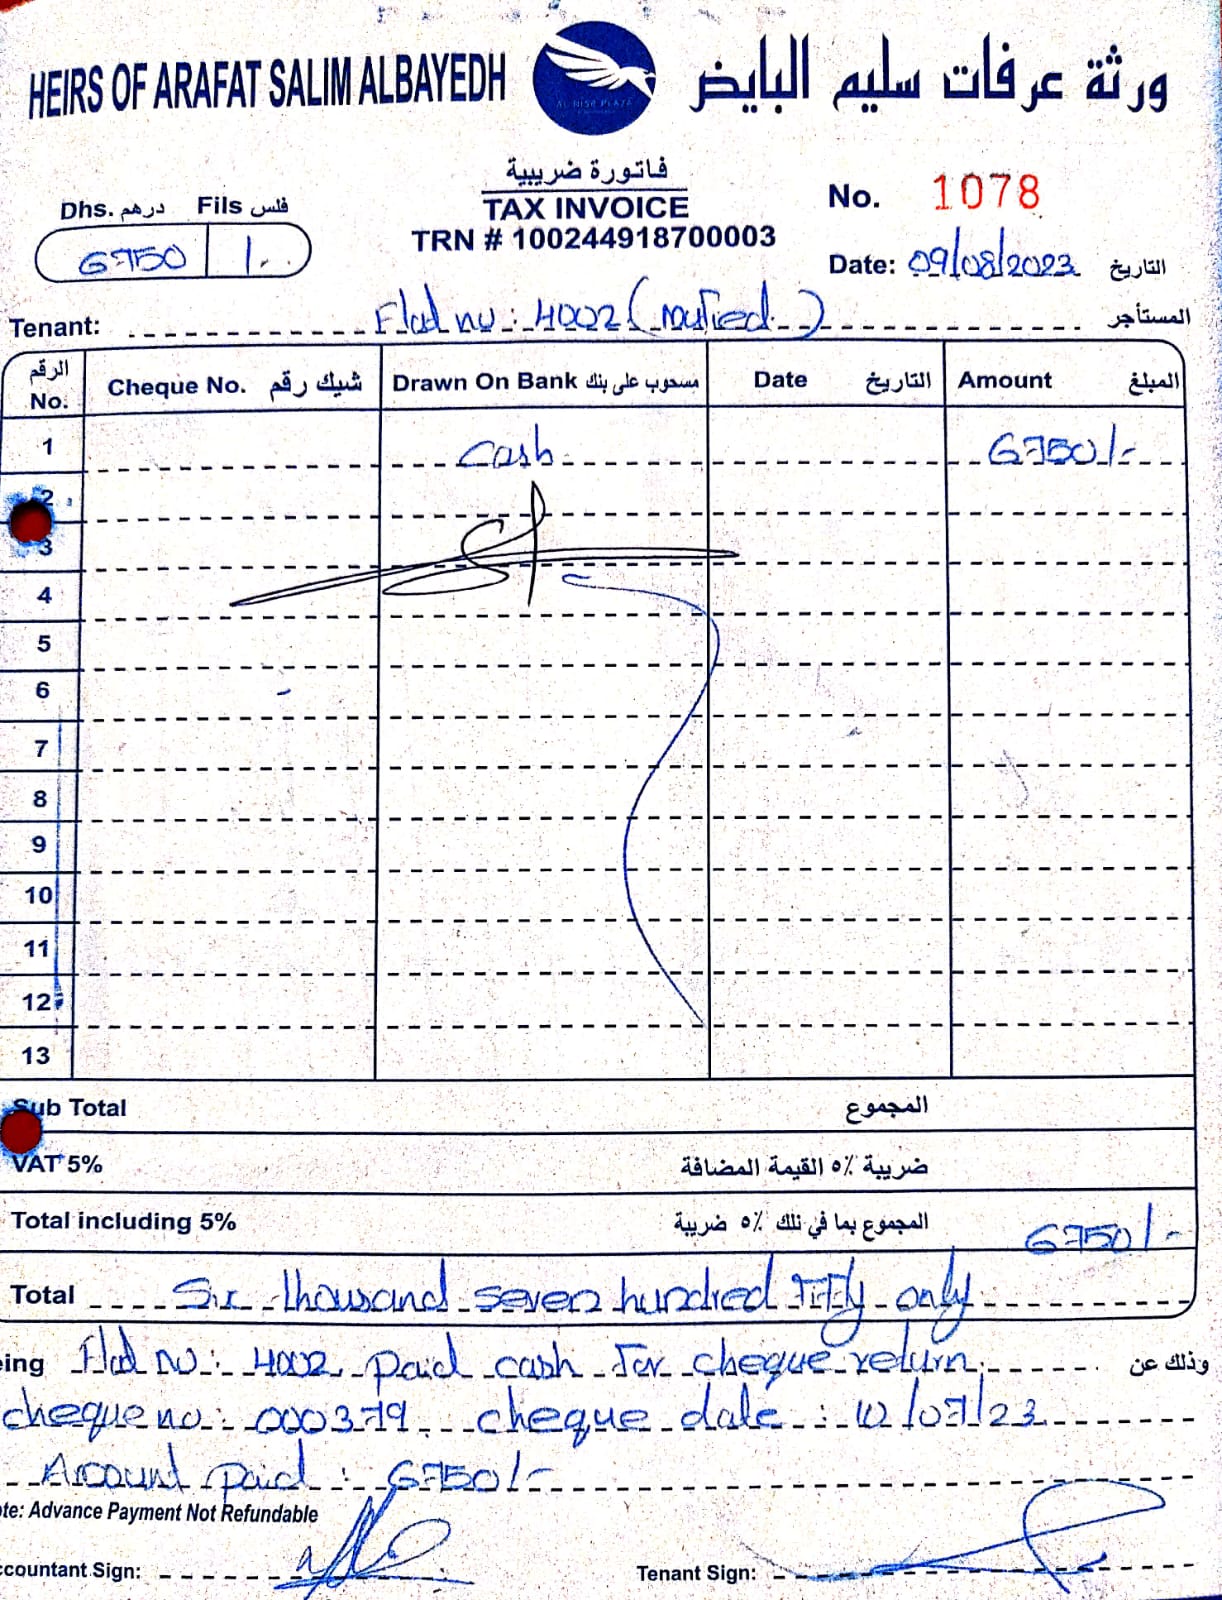 HEIRS OF ARAFAT SALIM ALBAYEDH
ورثة عرفات سليم البايض
AL NISR PLAZA
فاتورة ضريبية
TAX INVOICE
TRN # 100244918700003
No. 1078
Dhs. درهم Fils فلس
6750 /-
Date: 09/08/2023 التاريخ
Tenant: Flat no: 4002 ( ) المستأجر
الرقم No. Cheque No. شيك رقم Drawn On Bank مسحوب على بنك Date التاريخ Amount المبلغ
1 Cash 6750/-
2
3
4
5
6
7
8
9
10
11
12
13
Sub Total المجموع
VAT 5% ضريبة ٥٪ القيمة المضافة
Total including 5% المجموع بما في تلك ٥٪ ضريبة 6750/-
Total Six thousand seven hundred fifty only
ing Flat no: 4002 paid cash for cheque return وذلك عن
cheque no: 000379 cheque date: /07/23
Amount paid: 6750/-
te: Advance Payment Not Refundable
ccountant Sign: Tenant Sign: